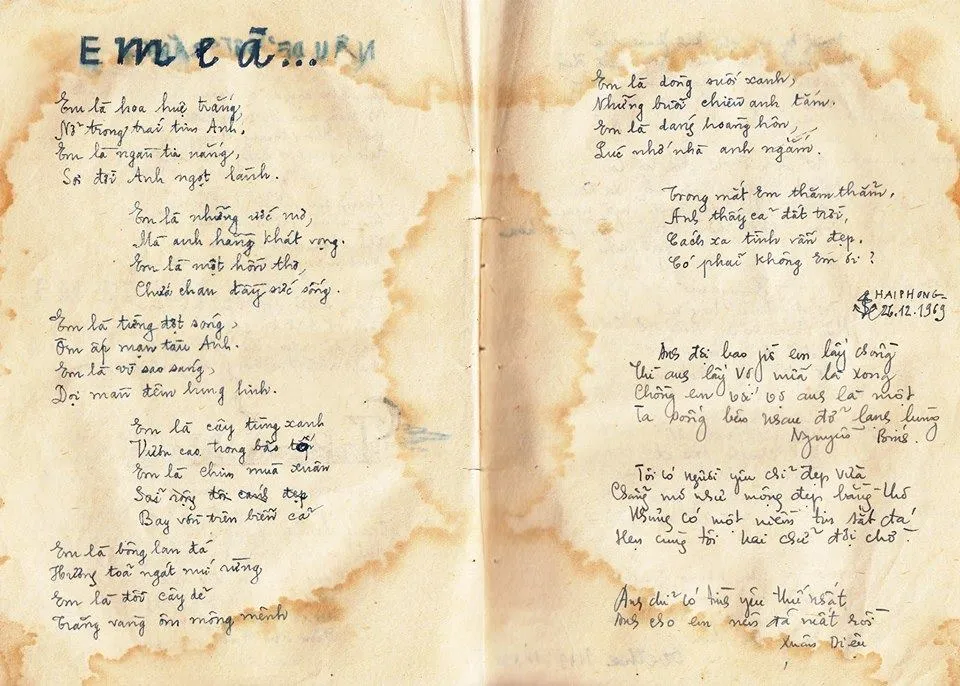 Em là...
Em là hoa huệ trắng,
Nở trong trái tim Anh.
Em là ngàn tia nắng,
Soi đời Anh ngọt lành.
Em là những ước mơ,
Mà anh hằng khát vọng.
Em là một hồn thơ,
Chứa chan đầy sức sống.
Em là từng đợt sóng,
Ôm ấp mạn tàu Anh.
Em là vì sao sáng,
Dọi màn đêm lung linh.
Em là cây tùng xanh
Vươn cao trong bão tố
Em là chim mùa xuân
Sải rộng đôi cánh đẹp
Bay vờn trên biển cả
Em là bông lan đá
Hương toả ngát núi rừng
Em là đồi cây dẻ
Trăng vàng ôm mông mênh
Em là dòng suối xanh,
Những buổi chiều anh tắm.
Em là dáng hoàng hôn,
Lúc nhớ nhà anh ngắm.
Trong mắt Em thăm thẳm,
Anh thấy cả đất trời,
Cách xa tình vẫn đẹp.
Có phải không Em ơi?
HAIPHONG-
26.12.1969
Anh đợi bao giờ em lấy chồng
Thì anh lấy vợ mới là xong
Chồng em với vợ anh là một
Ta sống bên nhau đỡ lạnh lùng
Nguyễn Bính.
Tôi có người yêu chỉ đẹp vừa
Chẳng mơ như mộng đẹp bằng thơ
Nhưng có một niềm tin sắt đá
Hẹn cùng tôi hai chữ đợi chờ.
Anh chỉ có tình yêu thứ nhất
Anh cho em nên đã mất rồi
Xuân Diệu